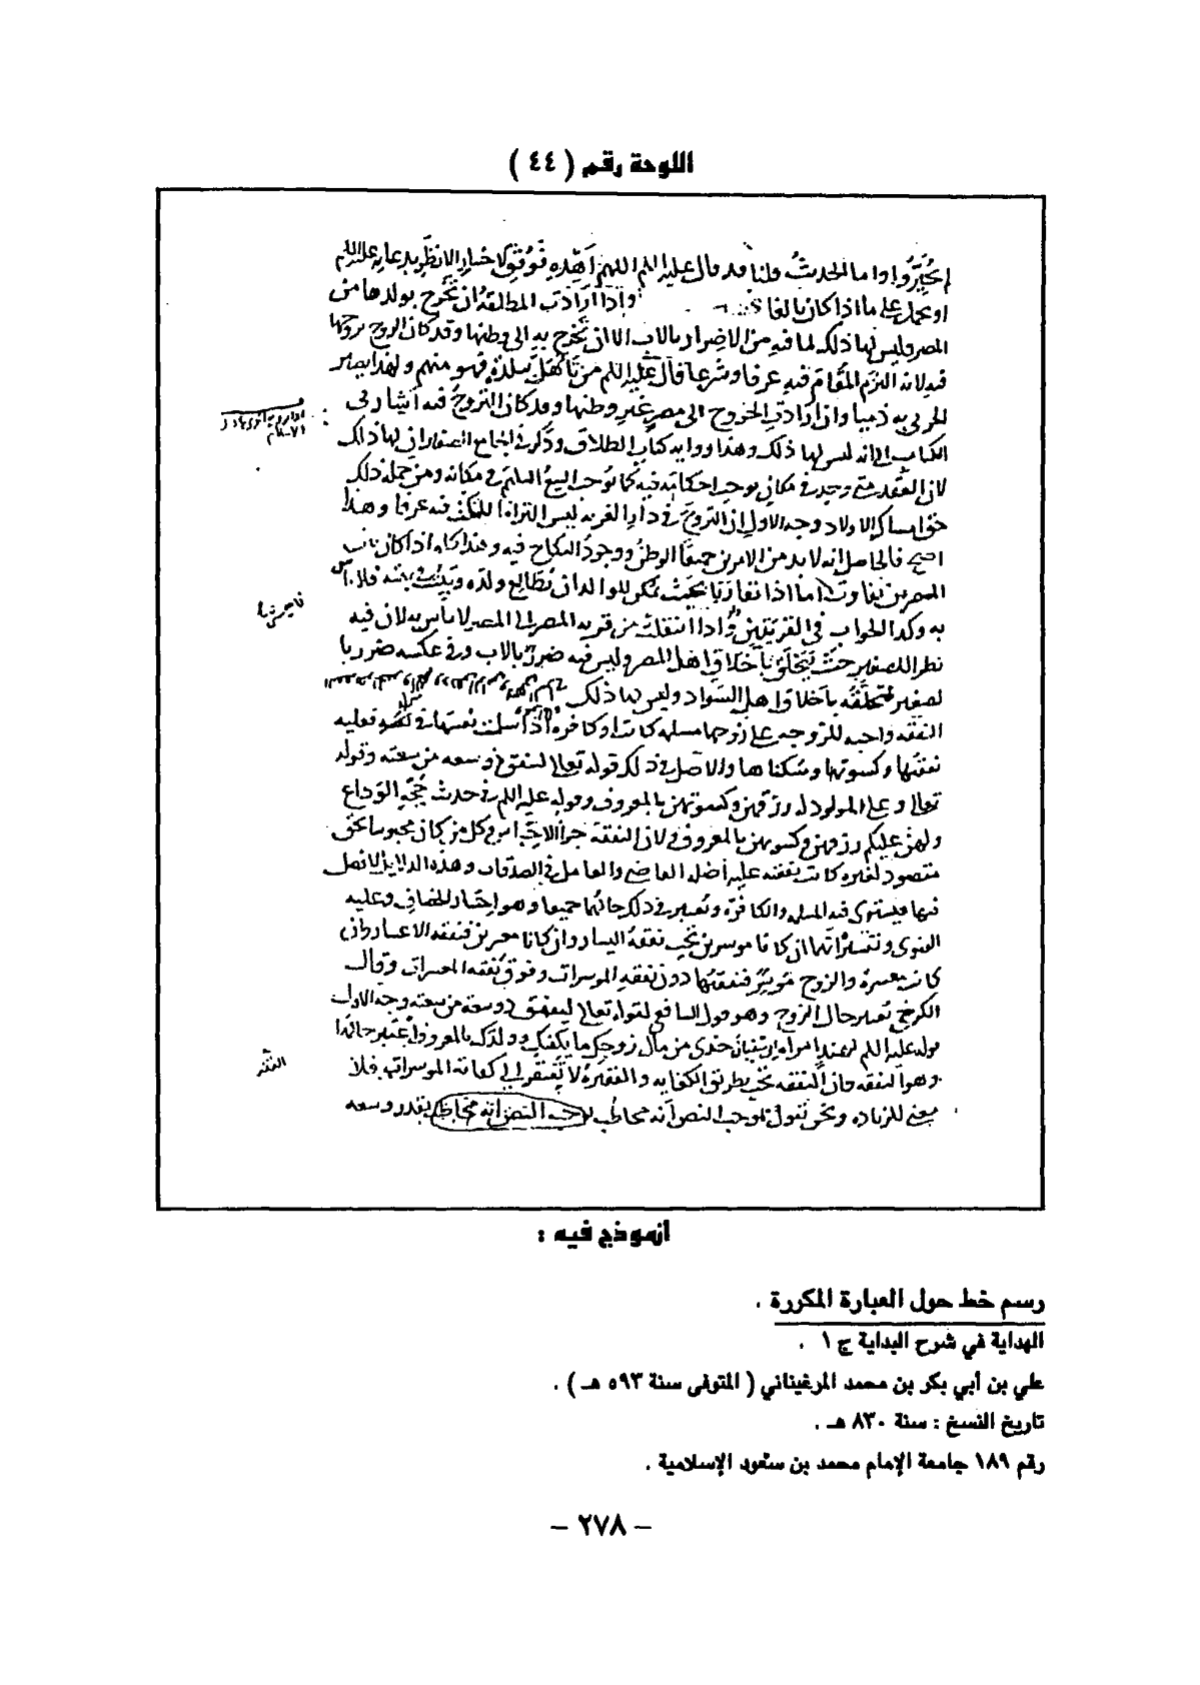 اللوحة رقم ( ٤٤ )
لم يخيّروا واما الحديث قلنا قد قال عليه السلم اللهم اهده فوفق لاختيار الانظر بدعايه عليه السلم
او يحمل على ما اذا كان بالغا واذا ارادت المطلقة ان تخرج بولدها من
المصر فليس لها ذلك لما فيه من الاضرار بالاب الا ان تخرج به الى وطنها وقد كان الزوج تزوجها
فيه لانه التزم المقام فيه عرفا وشرعا قال عليه السلم من تأهل ببلدة فهو منهم ولهذا يصير
الحربي به ذميا وان ارادت الخروج الى مصر غير وطنها وقد كان التزوج فيه اشار في
الكتاب الى انه ليس لها ذلك وهذا رواية كتاب الطلاق وذكر في الجامع الصغير ان لها ذلك
لان العقد متى وجد في مكان يوجب احكامه فيه كما يوجب البيع التسليم في مكانه ومن جملة ذلك
حق امساك الاولاد وجه الاول ان التزوج في دار الغربة ليس التزاما للمكث فيه عرفا وهذا
اصح فالحاصل انه لا بد من الامرين جميعا الوطن ووجود النكاح فيه وهذا كله اذا كان بين
المصرين تفاوت اما اذا تقاربا بحيث يمكن للوالد ان يطالع ولده ويبيت في بيته فلا باس
به وكذا الجواب في القريتين ولو اذا انتقلت من قرية المصر الى المصر لا باس به لان فيه
نظر للصغير حيث يتخلق باخلاق اهل المصر وليس فيه ضرر بالاب وفي عكسه ضرر با
لصغير لتخلقه باخلاق اهل السواد وليس لها ذلك
النفقه واجبه للزوجه على زوجها مسلمه كانت او كافرة اذا سلمت نفسها في منزله فعليه
نفقتها وكسوتها وسكناها والاصل في ذلك قوله تعالى لينفق ذو سعه من سعته وقوله
تعالى وعلى المولود له رزقهن وكسوتهن بالمعروف وقوله عليه السلم في حديث حجة الوداع
ولهن عليكم رزقهن وكسوتهن بالمعروف ولان النفقة جزاء الاحتباس وكل من كان محبوسا بحق
مقصود لغيره كانت نفقته عليه اصله القاضي والعامل في الصدقات وهذه الدلايل لا فصل
فيها فيستوي فيه المسلمه والكافرة وتعتبر في ذلك حالهما جميعا وهو اختيار الخصاف وعليه
الفتوى وتفسيره انهما ان كانا موسرين تجب نفقة اليسار وان كانا معسرين فنفقه الاعسار وان
كانت معسرة والزوج موسر فنفقتها دون نفقة الموسرات وفوق نفقه المعسرات وقال
الكرخي تعتبر حال الزوج وهو قول الشافعي لقوله تعالى لينفق ذو سعة من سعته وجه الاول
قوله عليه السلم لهند امراة ابي سفيان خذي من مال زوجك ما يكفيك وولدك بالمعروف اعتبر حالها
وهو الفقه فان النفقه تجب بطريق الكفايه والفقيرة لا تفتقر الى كفاية الموسرات فلا
معنى للزيادة ونحن نقول بموجب النص انه مخاطب بموجب النص انه مخاطب بقدر وسعه
انموذج فيه :
رسم خط حول العبارة المكررة .
الهداية في شرح البداية ج ١ .
علي بن أبي بكر بن محمد المرغيناني ( المتوفى سنة ٥٩٣ هـ ) .
تاريخ النسخ : سنة ٨٣٠ هـ .
رقم ١٨٩ جامعة الإمام محمد بن سعود الإسلامية .
– ٢٧٨ –